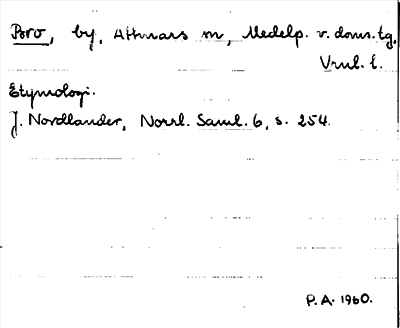 Boro, by, Attmars sn, Medelp. v. doms. tg,
Vnl. l.
Etymologi.
J. Nordlander, Norrl. Saml. 6, s. 254.
P.A. 1960.